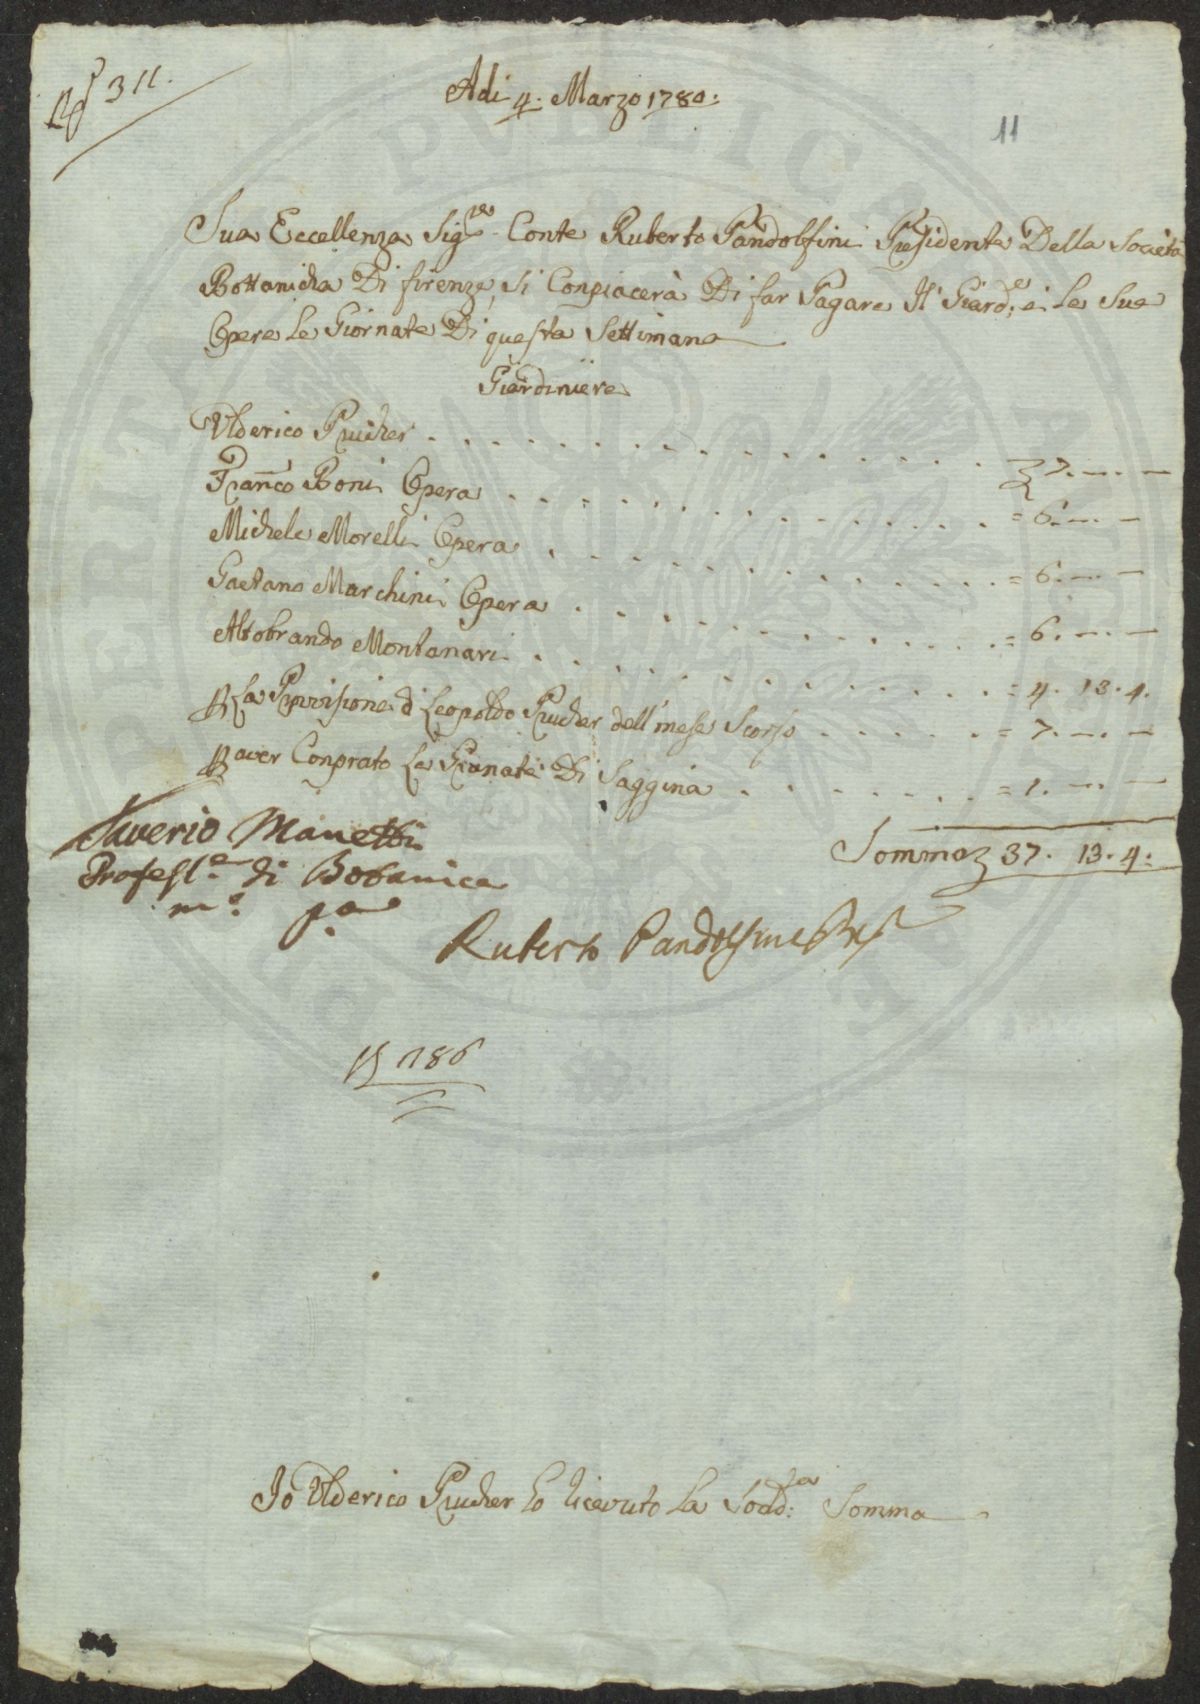 311.
Adi 4. Marzo 1780:
11
Sua Eccellenza Sig.re Conte Ruberto Pandolfini Presidente Della Società
Bottanicha Di firenze, Si Conpiacerà Di far Pagare Il Giard.e e Le Sue
Opere Le Giornate Di questa Settimana
Giardiniere
Ulderico Prucher . . . . . . . . . . . . . 7. —. —
Franco Boni Opera . . . . . . . . . . . . = 6. —. —
Michele Morelli Opera . . . . . . . . . . . = 6. —. —
Gaetano Marchini Opera . . . . . . . . . . = 6. —. —
Altobrando Montanari . . . . . . . . . . . = 4. 13. 4.
La Provisione di Leopoldo Prucher dell'mese Scorso . . . . . . = 7. —. —
aver Conprato Le Granate Di Saggina . . . . . . . = 1. —. —
Somma 37. 13. 4:
Saverio Manetti
Profess.e di Botanica
m.o p.a
Ruberto Pandolfini Pres
186
Io Ulderico Prucher ho ricevuto La Sodd:ta Somma